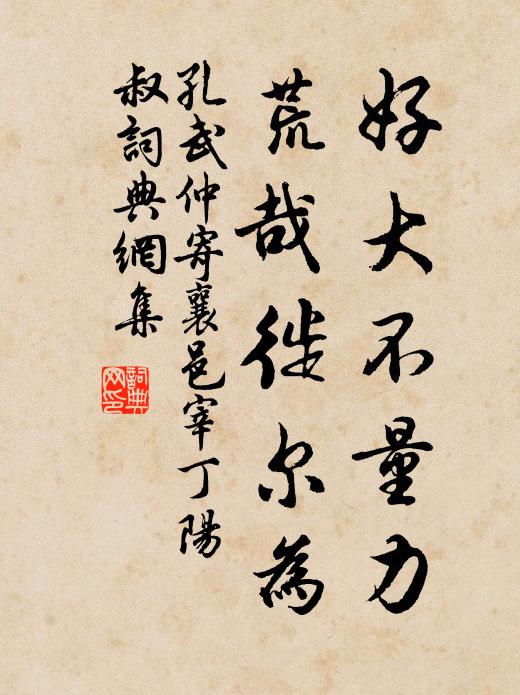 好大不量力
荒哉徒尔為
孔武仲寄襄邑宰丁陽
叔詞典網集
詞典網印